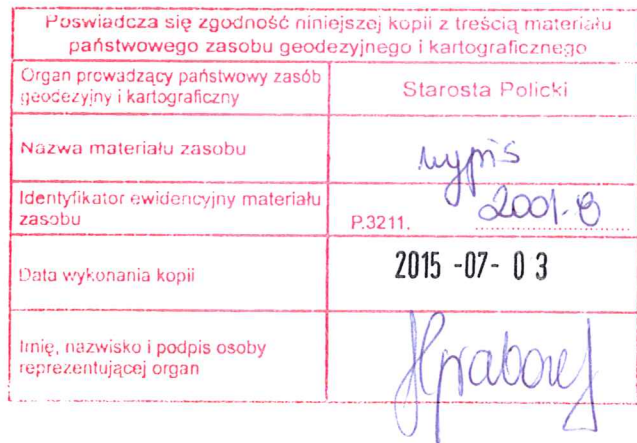 Poświadcza się zgodność niniejszej kopii z treścią materiału
państwowego zasobu geodezyjnego i kartograficznego
Organ prowadzący państwowy zasób
geodezyjny i kartograficzny
Starosta Policki
Nazwa materiału zasobu
wypis
Identyfikator ewidencyjny materiału
zasobu
P.3211. 2001.8
Data wykonania kopii
2015 -07- 0 3
Imię, nazwisko i podpis osoby
reprezentującej organ